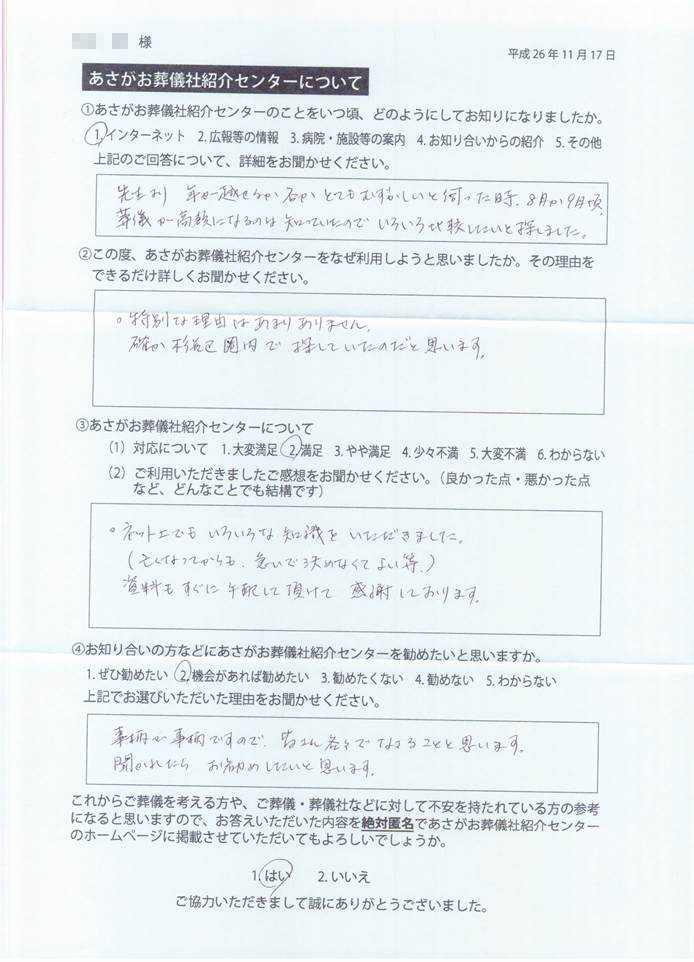 様
平成26年11月17日
あさがお葬儀社紹介センターについて
①あさがお葬儀社紹介センターのことをいつ頃、どのようにしてお知りになりましたか。
1.インターネット 2.広報等の情報 3.病院・施設等の案内 4.お知り合いからの紹介 5.その他
上記のご回答について、詳細をお聞かせください。
先生より 年が越せるか否か とてもむずかしいと伺った時、8月か9月頃、
葬儀が高額になるのは知っていたので いろいろ比較したいと探しました。
②この度、あさがお葬儀社紹介センターをなぜ利用しようと思いましたか。その理由を
できるだけ詳しくお聞かせください。
。特別な理由はあまりありません。
確か 杉並区圏内で 探していたのだと思います。
③あさがお葬儀社紹介センターについて
(1)対応について 1.大変満足 2.満足 3.やや満足 4.少々不満 5.大変不満 6.わからない
(2)ご利用いただきましたご感想をお聞かせください。(良かった点・悪かった点
など、どんなことでも結構です)
。ネット上でも いろいろな知識を いただきました。
(亡くなってからも、急いで決めなくてよい等。)
資料もすぐに手配して頂けて 感謝しております。
④お知り合いの方などにあさがお葬儀社紹介センターを勧めたいと思いますか。
1.ぜひ勧めたい 2.機会があれば勧めたい 3.勧めたくない 4.勧めない 5.わからない
上記でお選びいただいた理由をお聞かせください。
事柄が事柄ですので、皆さん各々で なさることと思います。
聞かれたら お勧めしたいと思います。
これからご葬儀を考える方や、ご葬儀・葬儀社などに対して不安を持たれている方の参考
になると思いますので、お答えいただいた内容を絶対匿名であさがお葬儀社紹介センター
のホームページに掲載させていただいてもよろしいでしょうか。
1.はい 2.いいえ
ご協力いただきまして誠にありがとうございました。